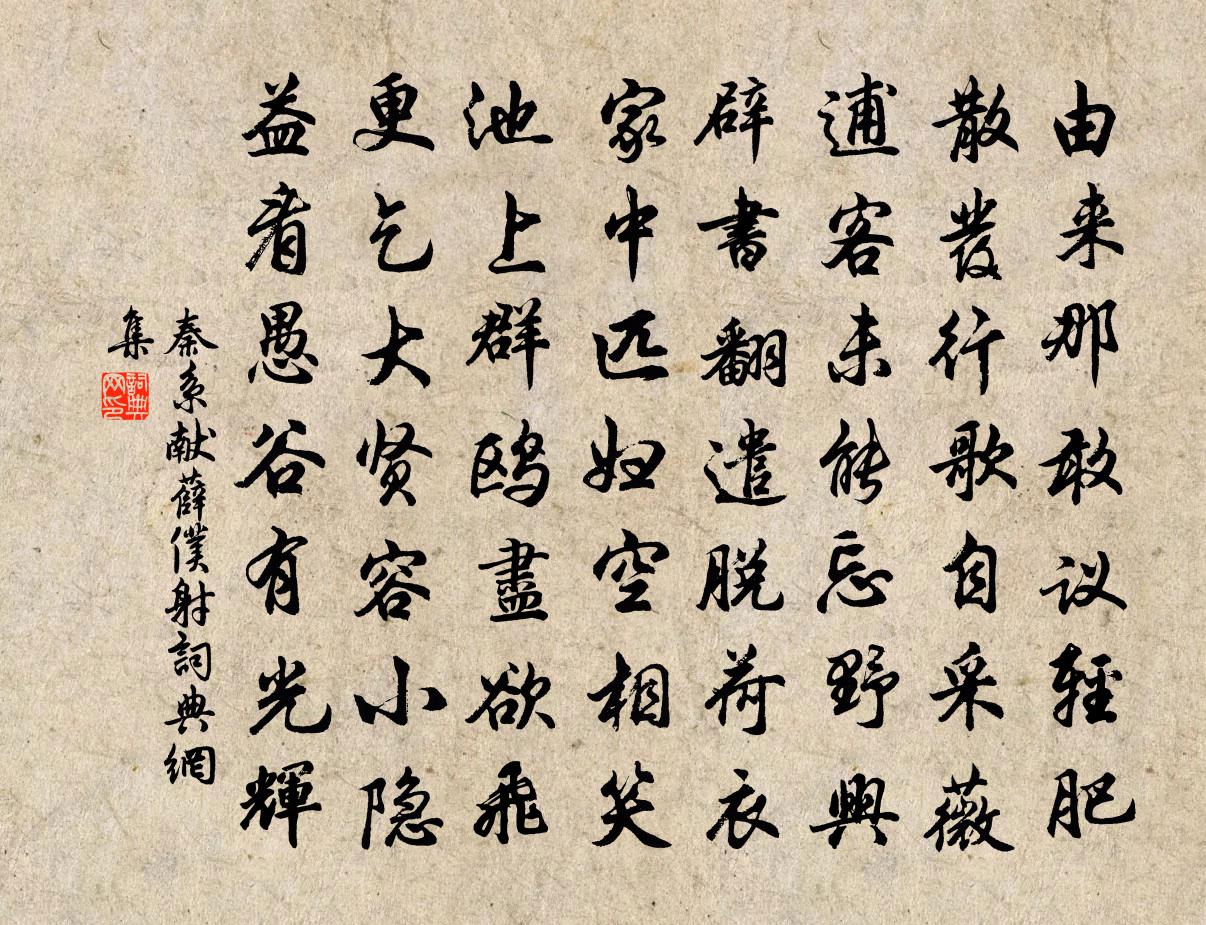 由来那敢议輕肥
散發行歌自采薇
逋客未能忘野興
辟書翻遣脱荷衣
家中匹妇空相笑
池上群鸥盡欲飛
更乞大贤容小隐
益看愚谷有光輝
秦系献薛僕射詞典網
集
詞典
网印